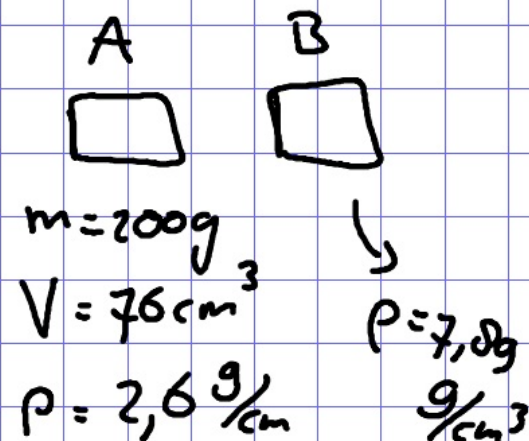 A B
m=200g
V=76cm³
ρ=2,6 g/cm
ρ=7,8g
g/cm³